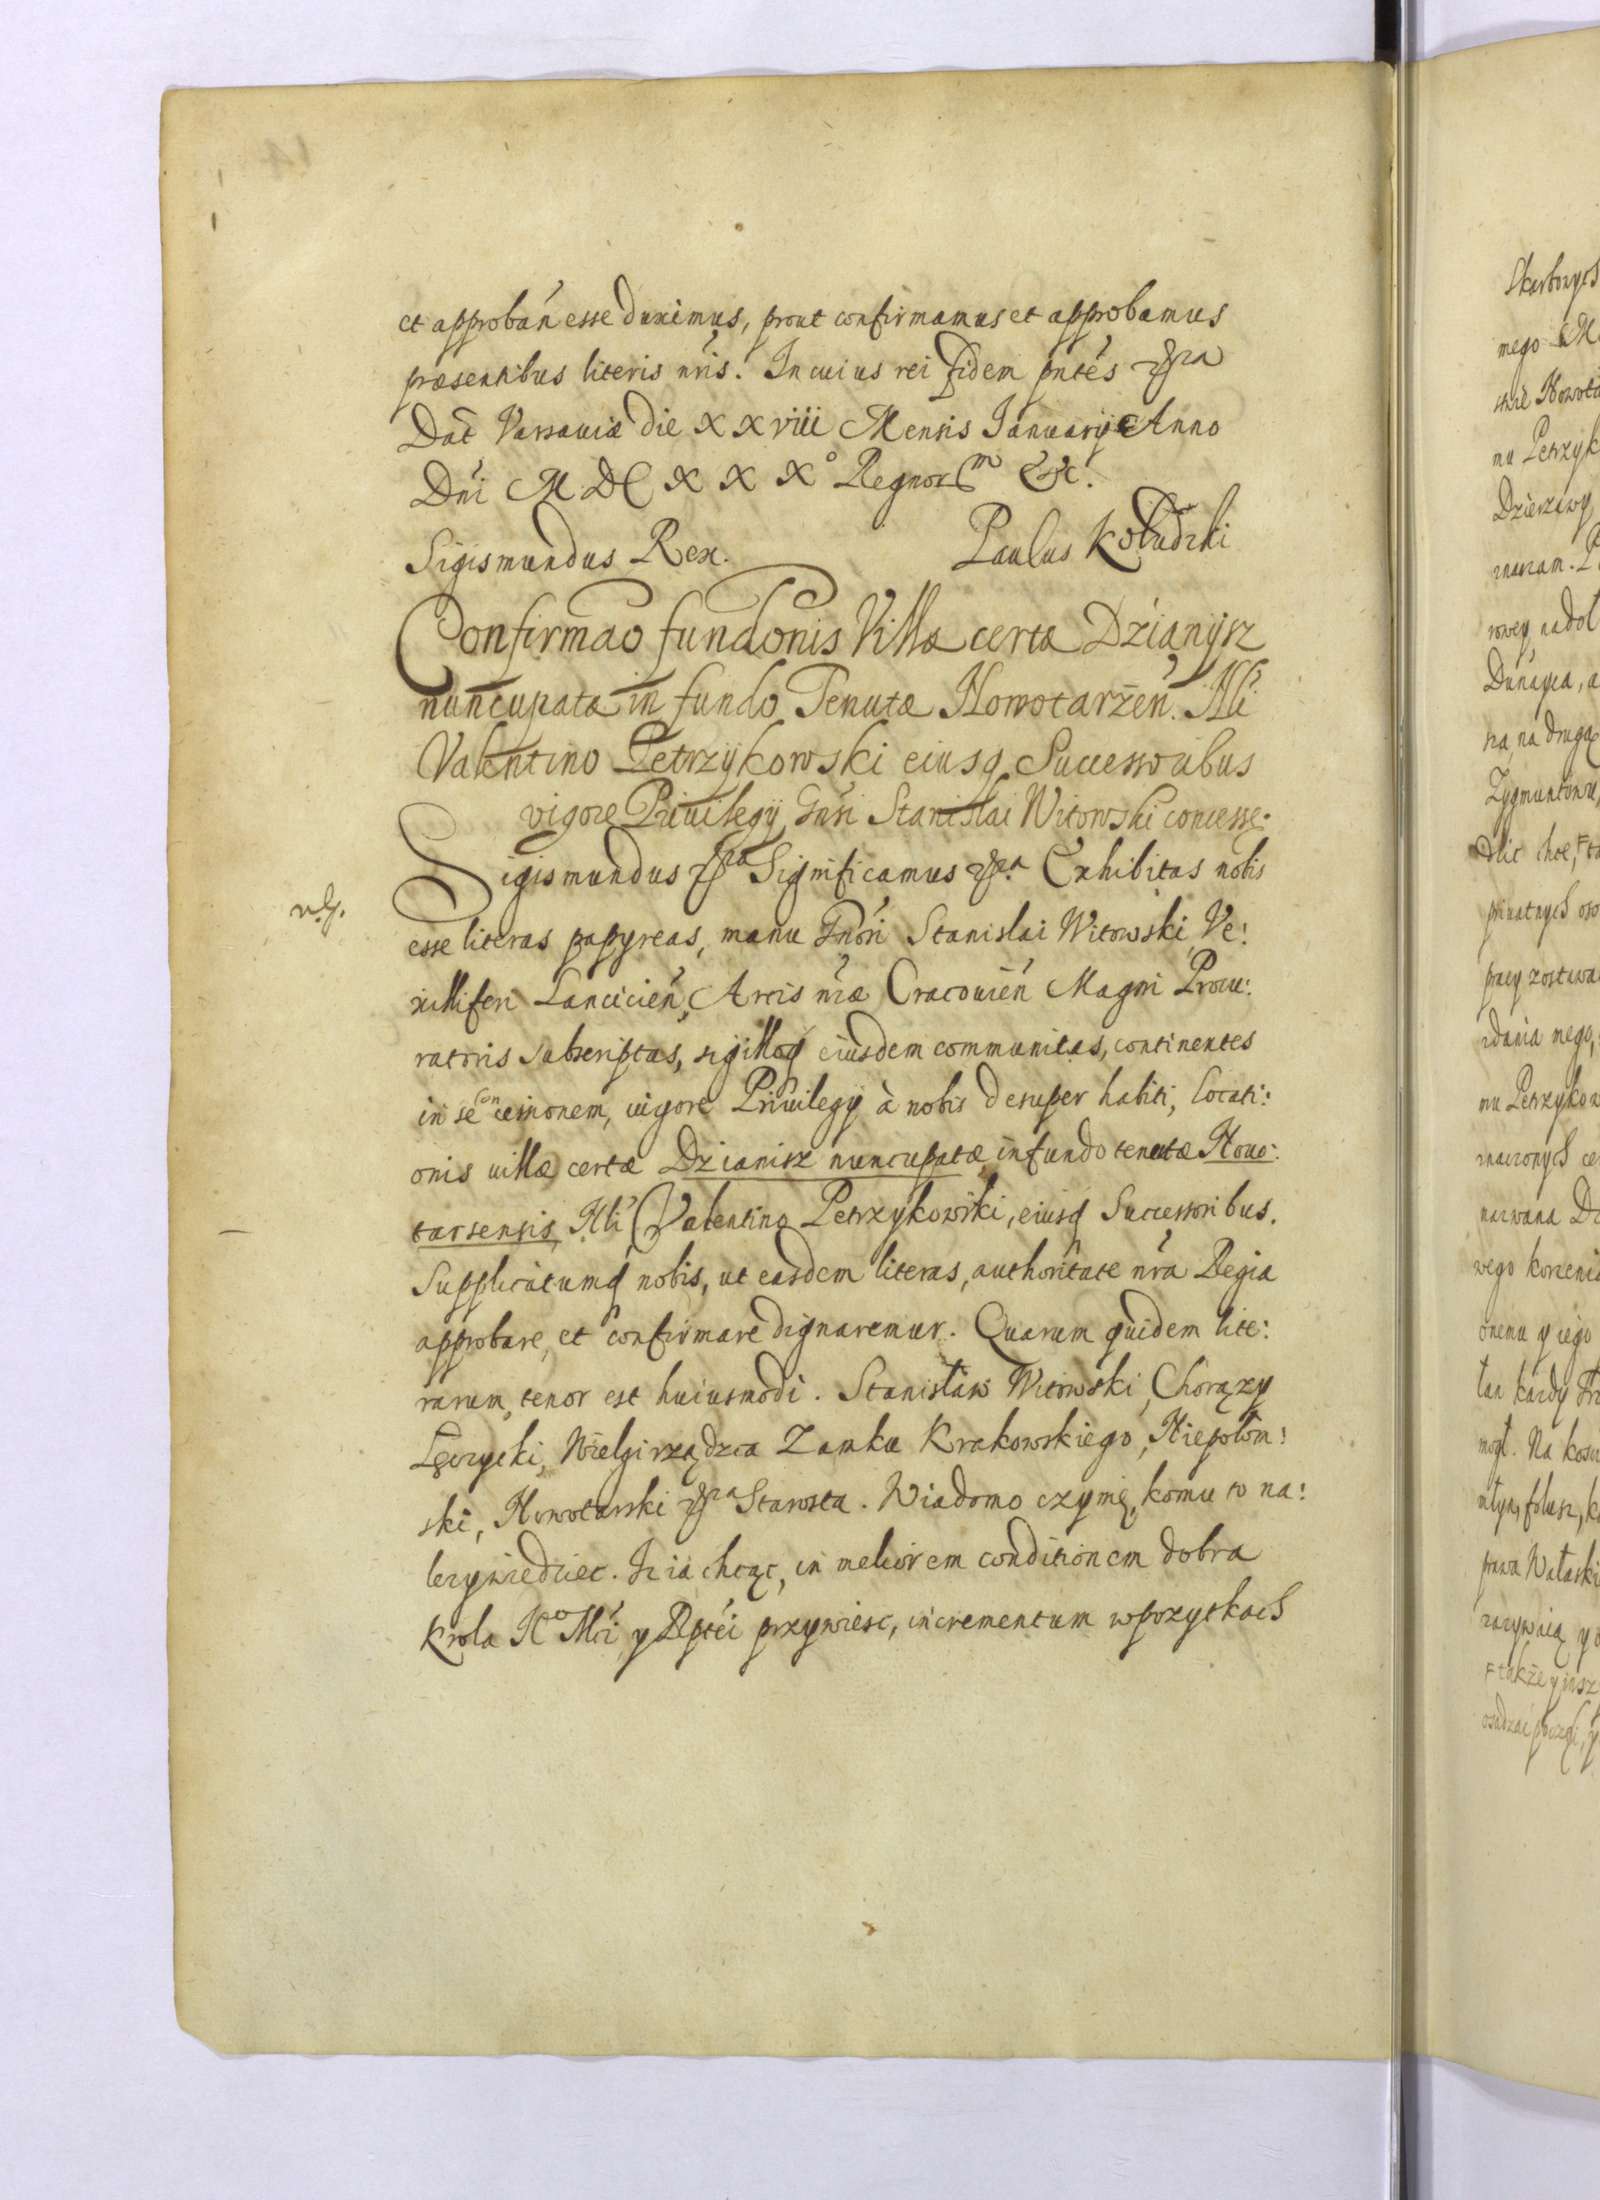 et approbań esse duximus, prout confirmamus et approbamus
præsentibus literis nŕis. In cuius rei fidem pntés &ra
Dat́ Varsaviæ die XXviii Mensis Januarij Anno
Dńi MDCXXX° Regnorm &c.
Sigismundus Rex. Paulus Koludzki
Confirmao fundonis Villæ certæ Dzianijsz
nuncupatæ in fundo Tenutæ Nowotarżeń. Nli
Valentino Petrzykowski eiusq Successoribus
vigore Privilegij Gnśi Stanislai Witowski concesse.
Sigismundus &ra Significamus &ra Exhibitas nobis
v.g.
esse literas papyreas, manu Gnośi Stanislai Witowski, Ve:
xilliferi Lancicień, Arcis nŕæ Cracovień Magni Procu:
ratoris subscriptas, sigilloq eiusdem communitas, continentes
in se concessionem, vigore Privilegij à nobis desuper habiti, locati:
onis villæ certæ Dzianisz nuncupatæ in fundo tenutæ Novo:
tarsensis, Nli Valentino Petrzykowski, eiusq Successoribus.
Supplicatumq nobis, ut easdem literas, authoritate nŕa Regia
approbare, et confirmare dignaremur. Quarum quidem lite:
rarum tenor est huiusmodi. Stanisław Witowski, Chorązy
Łęczycki, Wielgirządzca Zamku Krakowskiego, Niepołom:
ski, Nowotarski &ra Starosta. Wiadomo czynię, komu to na:
lezy wiedziec. Iz ia chcąc, in meliorem conditionem dobra
Krola Ko Mci y Rptéi przywiesc, incrementum w pozytkach
Skarbowych
nu Petrzyk
Dzierzawy
rowey, na doł
Dunayca, a
na drugą
Zygmuntowu,
privatnych oso
nu Petrzykow
nazwana Dz
wego korzenia
onemu y iego
tan kazdy
mogł. Na kosu
młyn, folusz, k
prawa Wołaski
także y insz